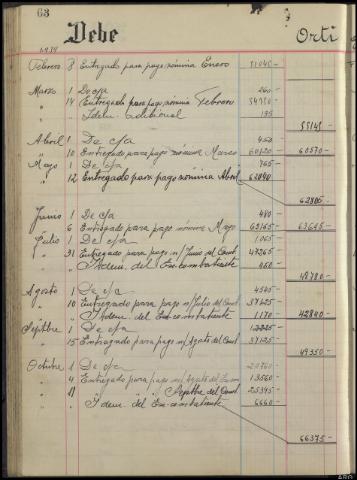 63
Debe
Orti
1939
Febrero 8 Entregado para pago nómina Enero 51045-
Marzo 1 De c/a 260-
" 14 Entregado para pago nómina Febrero 54780-
" " Idem. adicional 195
55145-
Abril 1 De c/a 450-
" 10 Entregado para pago nómina Marzo 60120- 60570-
Mayo 1 De c/a 765-
" 12 Entregado para pago nómina Abril 62040
62805-
Junio 1 De c/a 480-
" 6 Entregado para pago nómina Mayo 63165- 63645-
Julio 1 De c/a 1065-
" 31 Entregado para pago n/ Junio del Comb. 47265-
" " Idem. del Ex-combatiente 450-
48780-
Agosto 1 De c/a 4505-
" 10 Entregado para pago n/ Julio del Comb. 37125-
" " Idem. del Ex-combatiente 1170- 42800-
Sepbtre 1 De c/a
" 15 Entregado para pago n/ Agsto del Comb. 37125-
49350-
Octubre 1 De c/a
" 4 Entregado para pago n/ Agsto del 13560-
" 11 " " " Sepbtre del Comb. 25395-
" " Idem. del Ex-combatiente 6660-
66375-